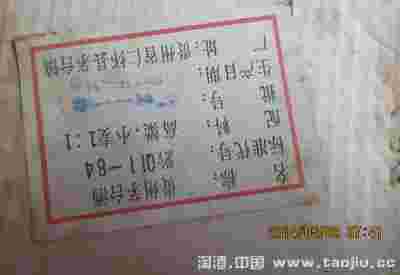 名 称：贵州茅台酒
标准代号：黔Q11—84
配 料：高粱·小麦1：1
批 号：
生产日期：
厂 址：贵州省仁怀县茅台镇
淘酒.中国 www.taojiu.cc